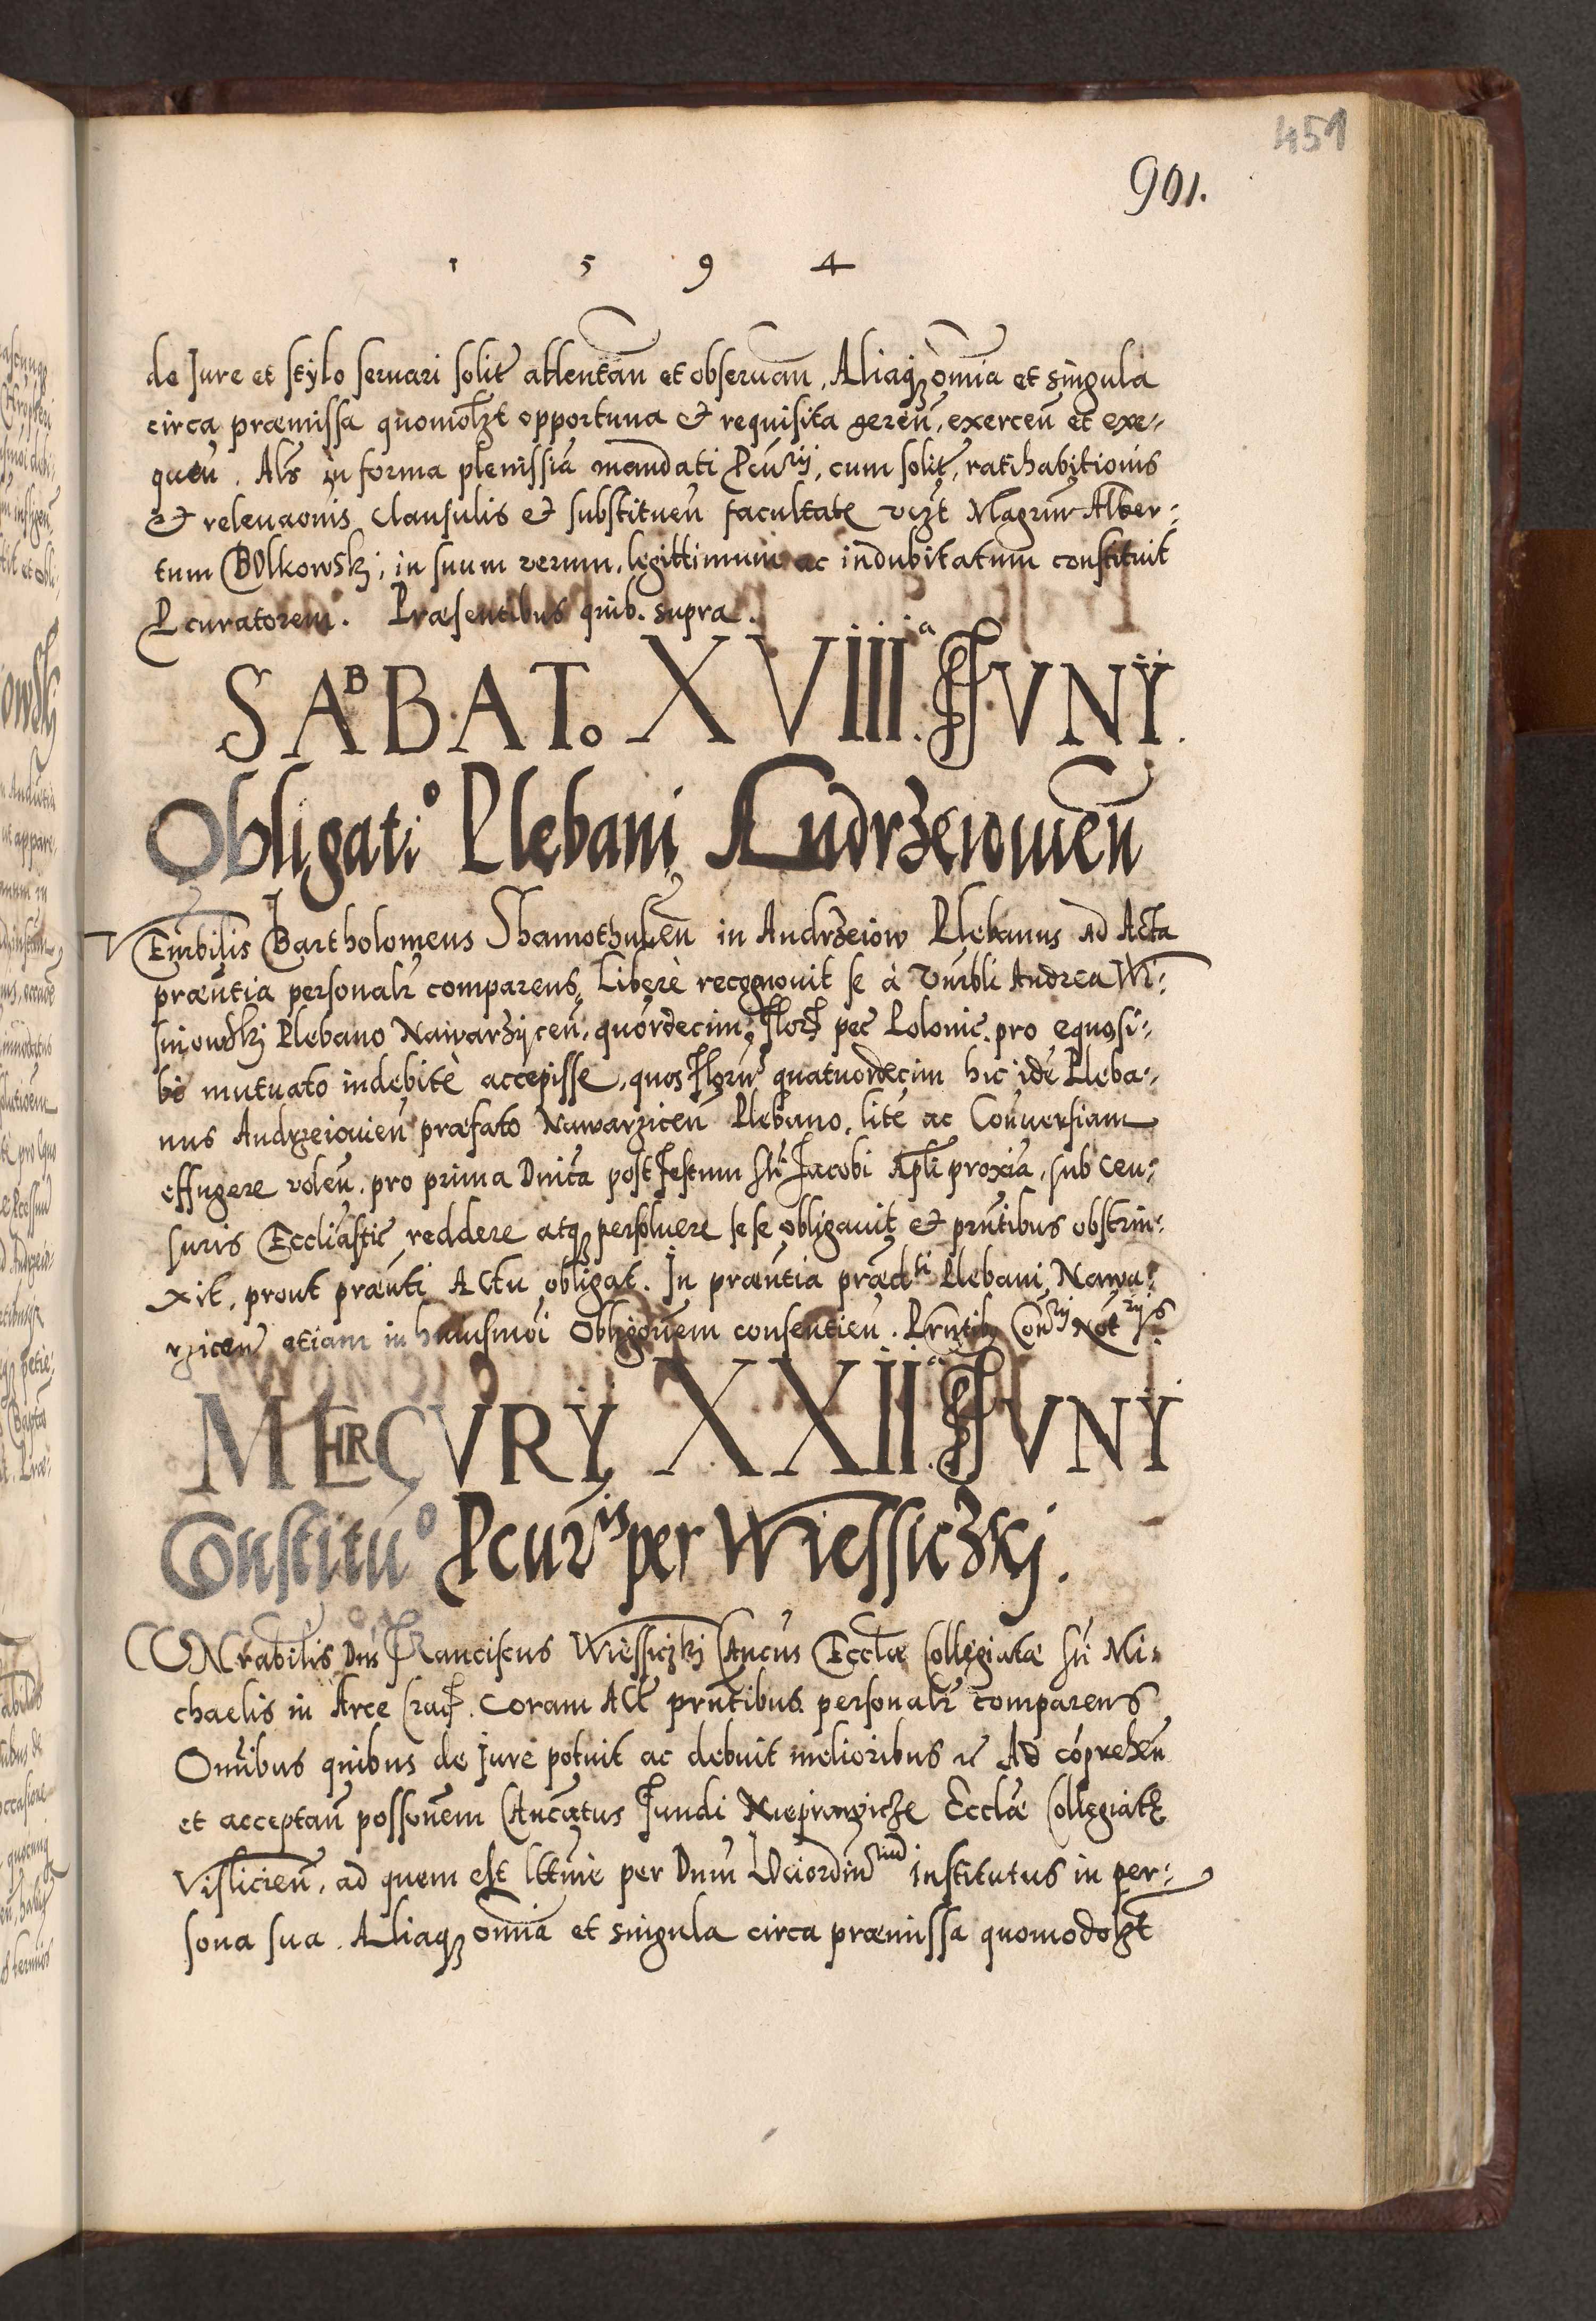 451
901.
1 5 9 4
de Jure et stylo servari solit̃ attentañ et observañ, Aliaqȝ om̃ia et singula
circa præmissa quomolꝫt opportuna & requisita gereñ, exerceñ et exe-
queñ. Als̃ in forma plenissiã mandati Pcũrij, cum solit̃, ratihabitionis
& relevaõnis clausulis & substitueñ facultate vcꝫt Magrũm Alber-
tum Bolkowskj, in suum verum, legittimum ac indubitatum constituit
Pcuratorem. Præsentibus quib. supra.
SABBATo XVIIIa JUNY.
Obligatio Plebani Andrzeiovieñ
VEnr̃bilis Bartholomeus Shamothuleñ in Andrzeiow Plebanus ad Acta
præñtia personalr̃ comparens, Liberè recognovit se à Veñrbli Andrea Wi-
sniowskj Plebano Nawarzyceñ, quõrdecim flor̃ pec̃ Polonic̃, pro equo si-
bi mutuato indebitè accepisse, quos flor̃ quatuordecim hic idẽ Pleba-
nus Andrzeiovieñ præfato Nawarziceñ Plebano, litẽ ac Coñversiam
effugere voleñ, pro prima Dnĩca post festum Sti Jacobi Apl̃i proxiã, sub cen-
suris Eccliãstic̃ reddere atqȝ persolvere sese obligavit & prñtibus obstrin-
xit, prout præñti Actu obligat. In præñtia prædti Plebani Nawa-
rziceñ etiam in huiusmõi Obligõnem consentieñ. Prñtibȝ Coñrij Not̃rijs
MERCURY XXIIa JUNY
Constituo Pcuris per Wiessiczkj.
VEnrabilis Dñs Franciscus Wiessiczkj Cañcus Ecclæ Collegiatæ Sti Mi-
chaelis in Arce Crac̃. Coram Act̃ prñtibus personalr̃ comparens
Om̃ibus quibus de Jure potuit ac debuit melioribus &c̃ Ad cõprehen̄
et acceptañ possõnem Cañcatus fundi Ecclæ Collegiatæ
Vislicieñ, ad quem est lttimè per Dnũ institutus in per-
sona sua. Aliaqȝ om̃ia et singula circa præmissa quomodolꝫt